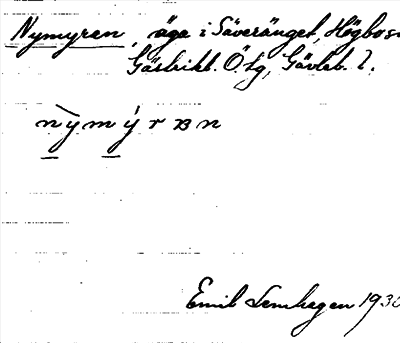 Nymyren, äga i Säveränget, Högbo s
Gästrikl. Ö. tg, Gävleb. l.
nỳmýrɐn
Emil Lenhagen 1930